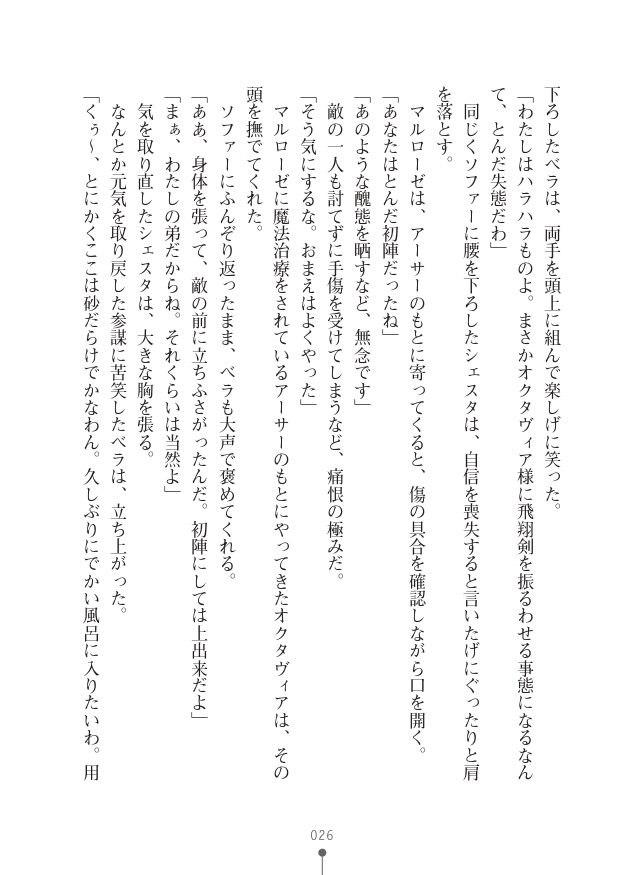 下ろしたベラは、両手を頭上に組んで楽しげに笑った。
「わたしはハラハラものよ。まさかオクタヴィア様に飛翔剣を振るわせる事態になるなん
て、とんだ失態だわ」
同じくソファーに腰を下ろしたシェスタは、自信を喪失すると言いたげにぐったりと肩
を落とす。
マルローゼは、アーサーのもとに寄ってくると、傷の具合を確認しながら口を開く。
「あなたはとんだ初陣だったね」
「あのような醜態を晒すなど、無念です」
敵の一人も討てずに手傷を受けてしまうなど、痛恨の極みだ。
「そう気にするな。おまえはよくやった」
マルローゼに魔法治療をされているアーサーのもとにやってきたオクタヴィアは、その
頭を撫でてくれた。
ソファーにふんぞり返ったまま、ベラも大声で褒めてくれる。
「ああ、身体を張って、敵の前に立ちふさがったんだ。初陣にしては上出来だよ」
「まぁ、わたしの弟だからね。それくらいは当然よ」
気を取り直したシェスタは、大きな胸を張る。
なんとか元気を取り戻した参謀に苦笑したベラは、立ち上がった。
「くぅ～、とにかくここは砂だらけでかなわん。久しぶりにでかい風呂に入りたいわ。用
026